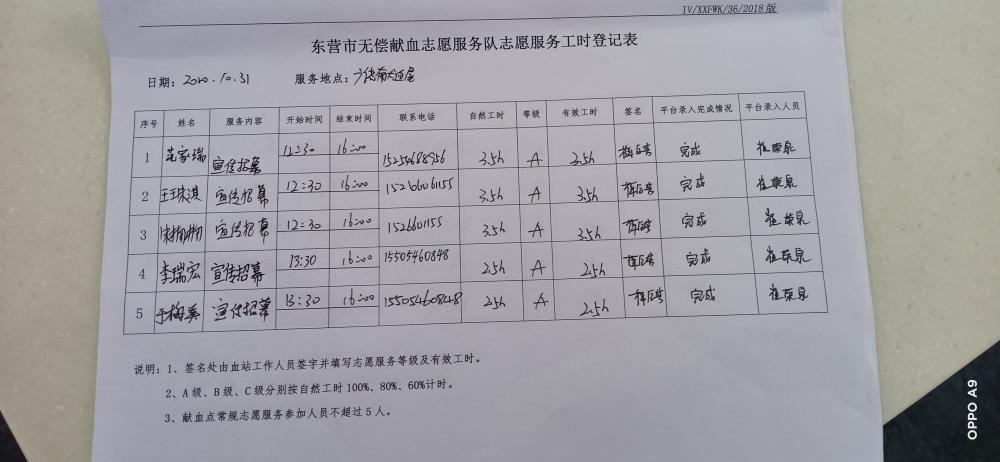 IV/XXFWK/36/2018版
东营市无偿献血志愿服务队志愿服务工时登记表
日期：2020.10.31 服务地点：
序号 姓名 服务内容 开始时间 结束时间 联系电话 自然工时 等级 有效工时 签名 平台录入完成情况 平台录入人员
1 范家瑞 宣传招募 12:30 16:00 15254688956 3.5h A 3.5h 完成 崔荣泉
2 宣传招募 12:30 16:00 15266061155 3.5h A 3.5h 完成 崔荣泉
3 宣传招募 12:30 16:00 1526601155 3.5h A 3.5h 完成 崔荣泉
4 李瑞宏 宣传招募 13:30 16:00 15505460848 2.5h A 2.5h 完成 崔荣泉
5 于梅英 宣传招募 13:30 16:00 15505460848 2.5h A 2.5h 完成 崔荣泉
说明：1、签名处由血站工作人员签字并填写志愿服务等级及有效工时。
2、A级、B级、C级分别按自然工时100%、80%、60%计时。
3、献血点常规志愿服务参加人员不超过5人。
OPPO A9